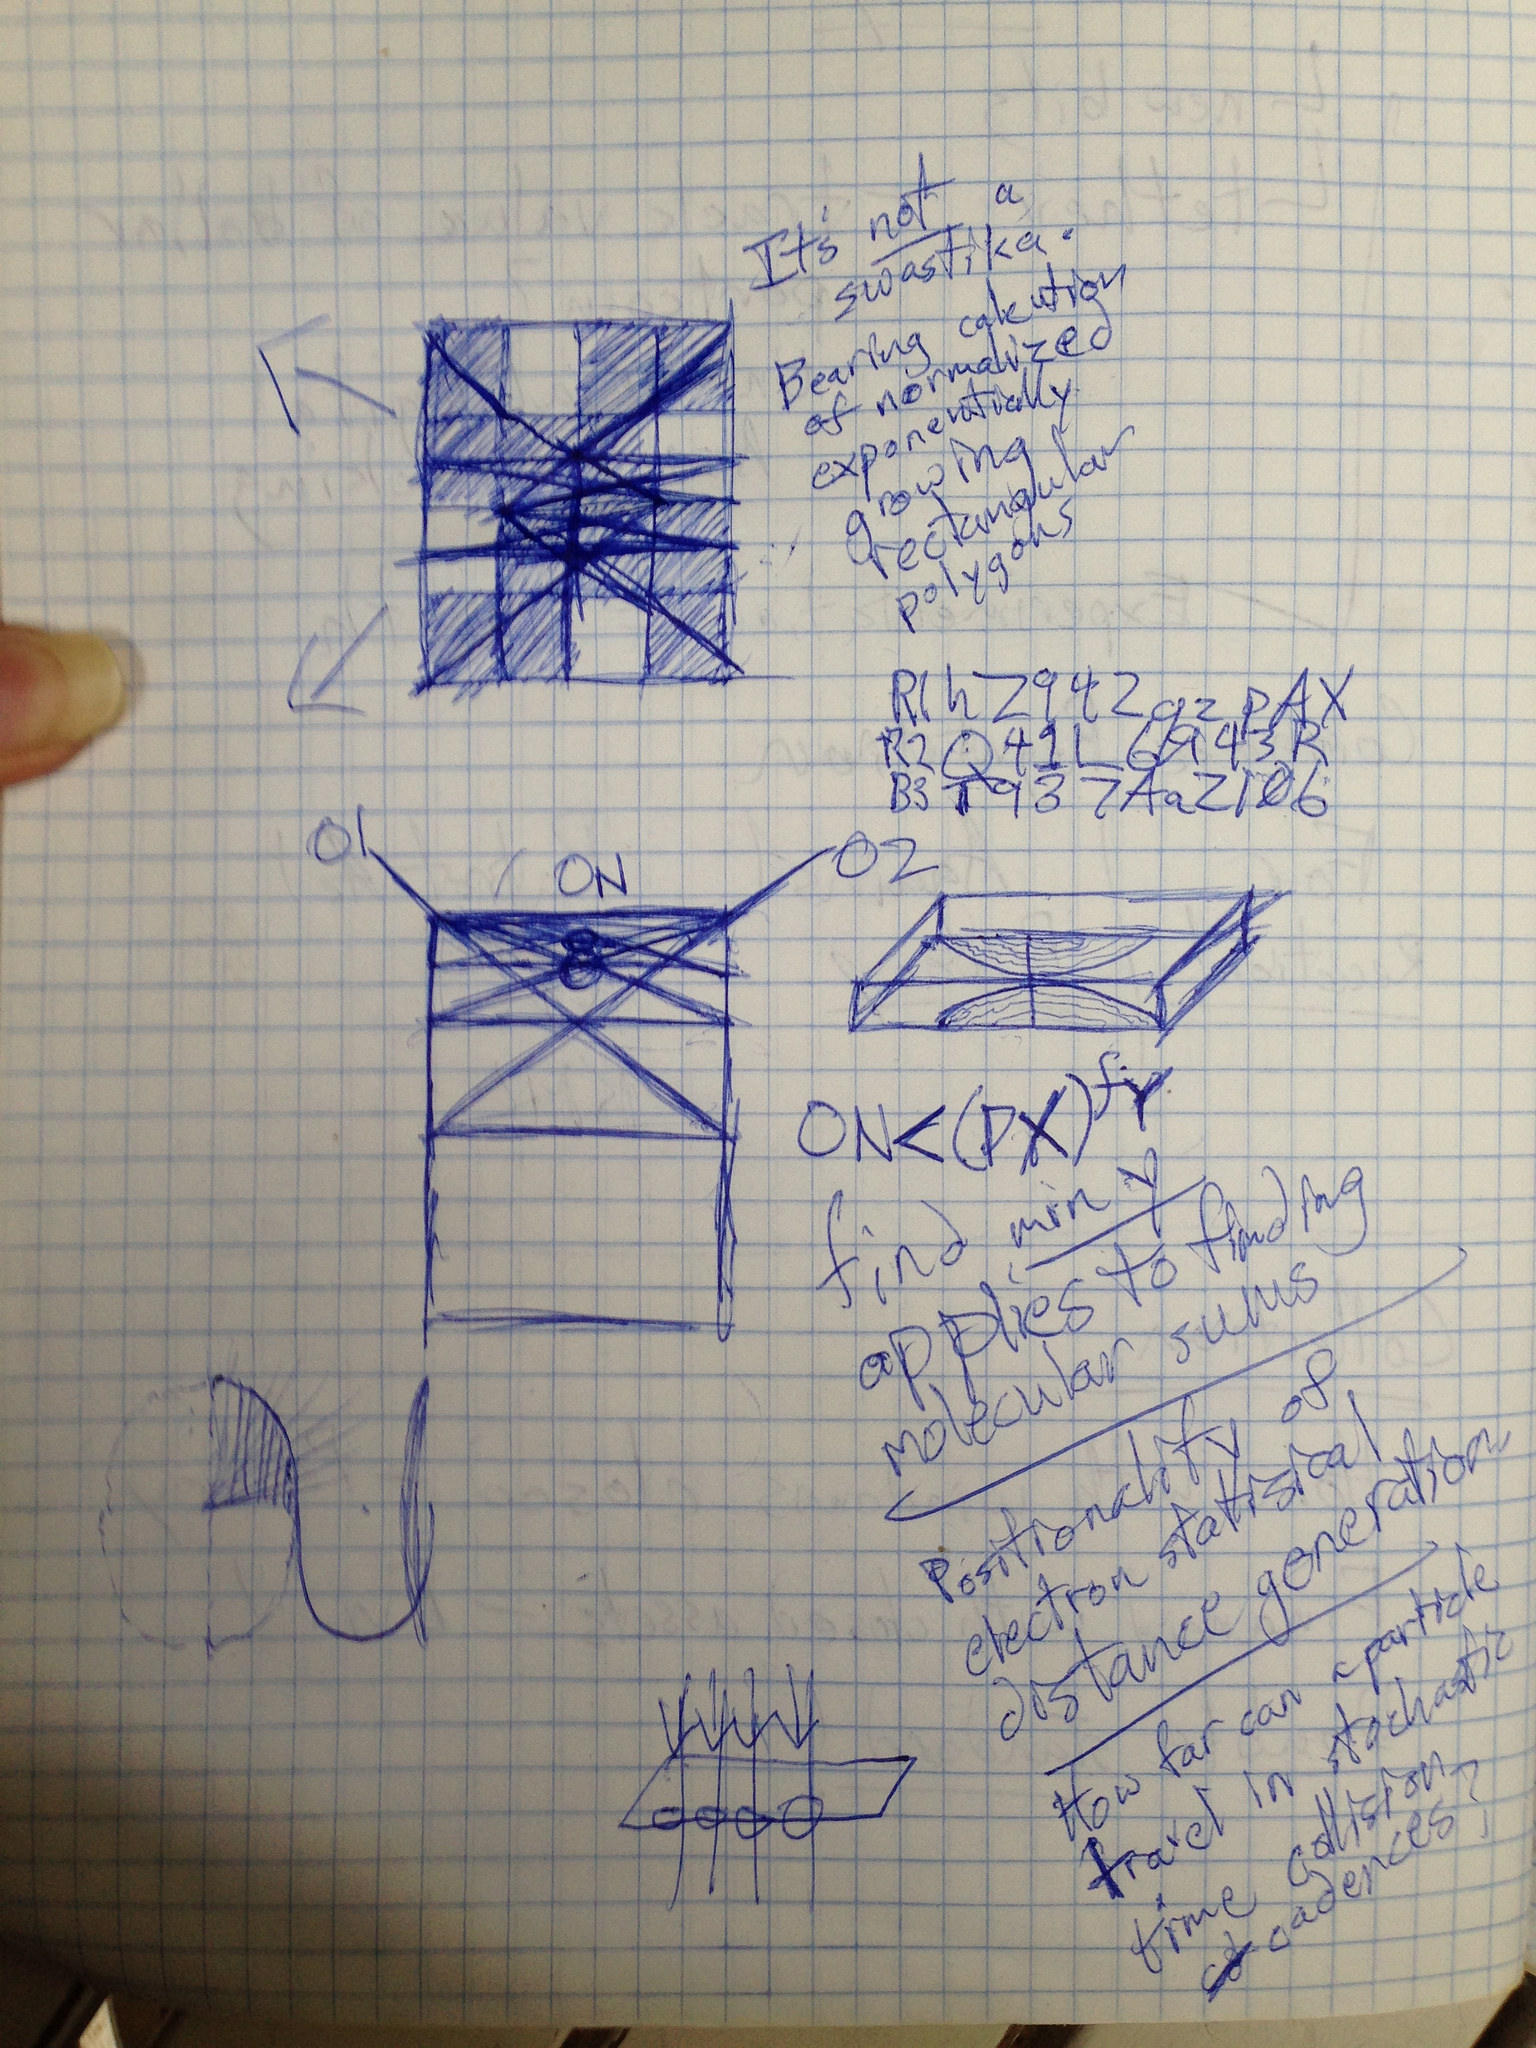 It's not a
swastika.
Bearing calcution
of normalized
exponentially
growing
rectangular
polygons
R1hZ942qzpAX
R2Q41L6943R
B3T937AaZ106
01
ON
02
ON<(PX)^fy
find min y
applies to finding
molecular sums
Positionality of
electron stattisical
distance generation
How far can a particle
travel in stochastic
time collision
cadences?